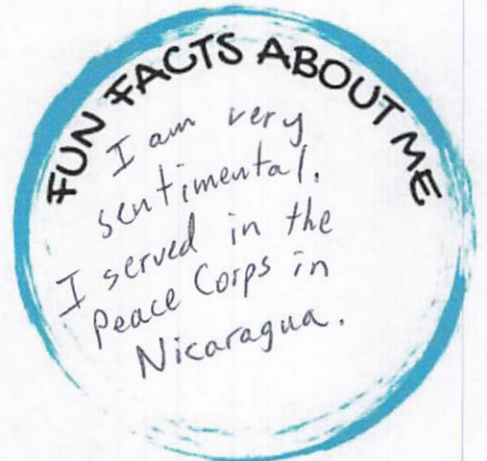 FUN FACTS ABOUT ME
I am very
sentimental.
I served in the
Peace Corps in
Nicaragua.